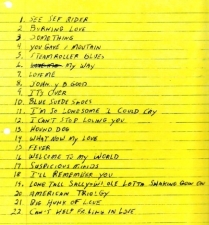 1. SEE SEE RIDER
2 BURNING LOVE
3 SOMETHING
4 YOU GAVE A MOUTAIN
5 STEAMROLLER BLUES
6 LOVE ME MY WAY
7. LOVE ME
8. JOHNY B GOOD
9. IT'S OVER
10. BLUE SUEDE SHOES
11. I'M SO LONESOME I COULD CRY
12 I CAN'T STOP LOVING YOU
13. HOUND DOG
14. WHAT NOW MY LOVE
15 FEVER
16 WELCOME TO MY WORLD
17 SUSPICIOUS MINDS
18 I'LL REMEMBER YOU
19. LONG TALL SALLY WHOLE LOTTA SHAKING GOIN ON
20 AMERICAN TRILOGY
21. BIG HUNK OF LOVE
22 CAN'T HELP FALLING IN LOVE